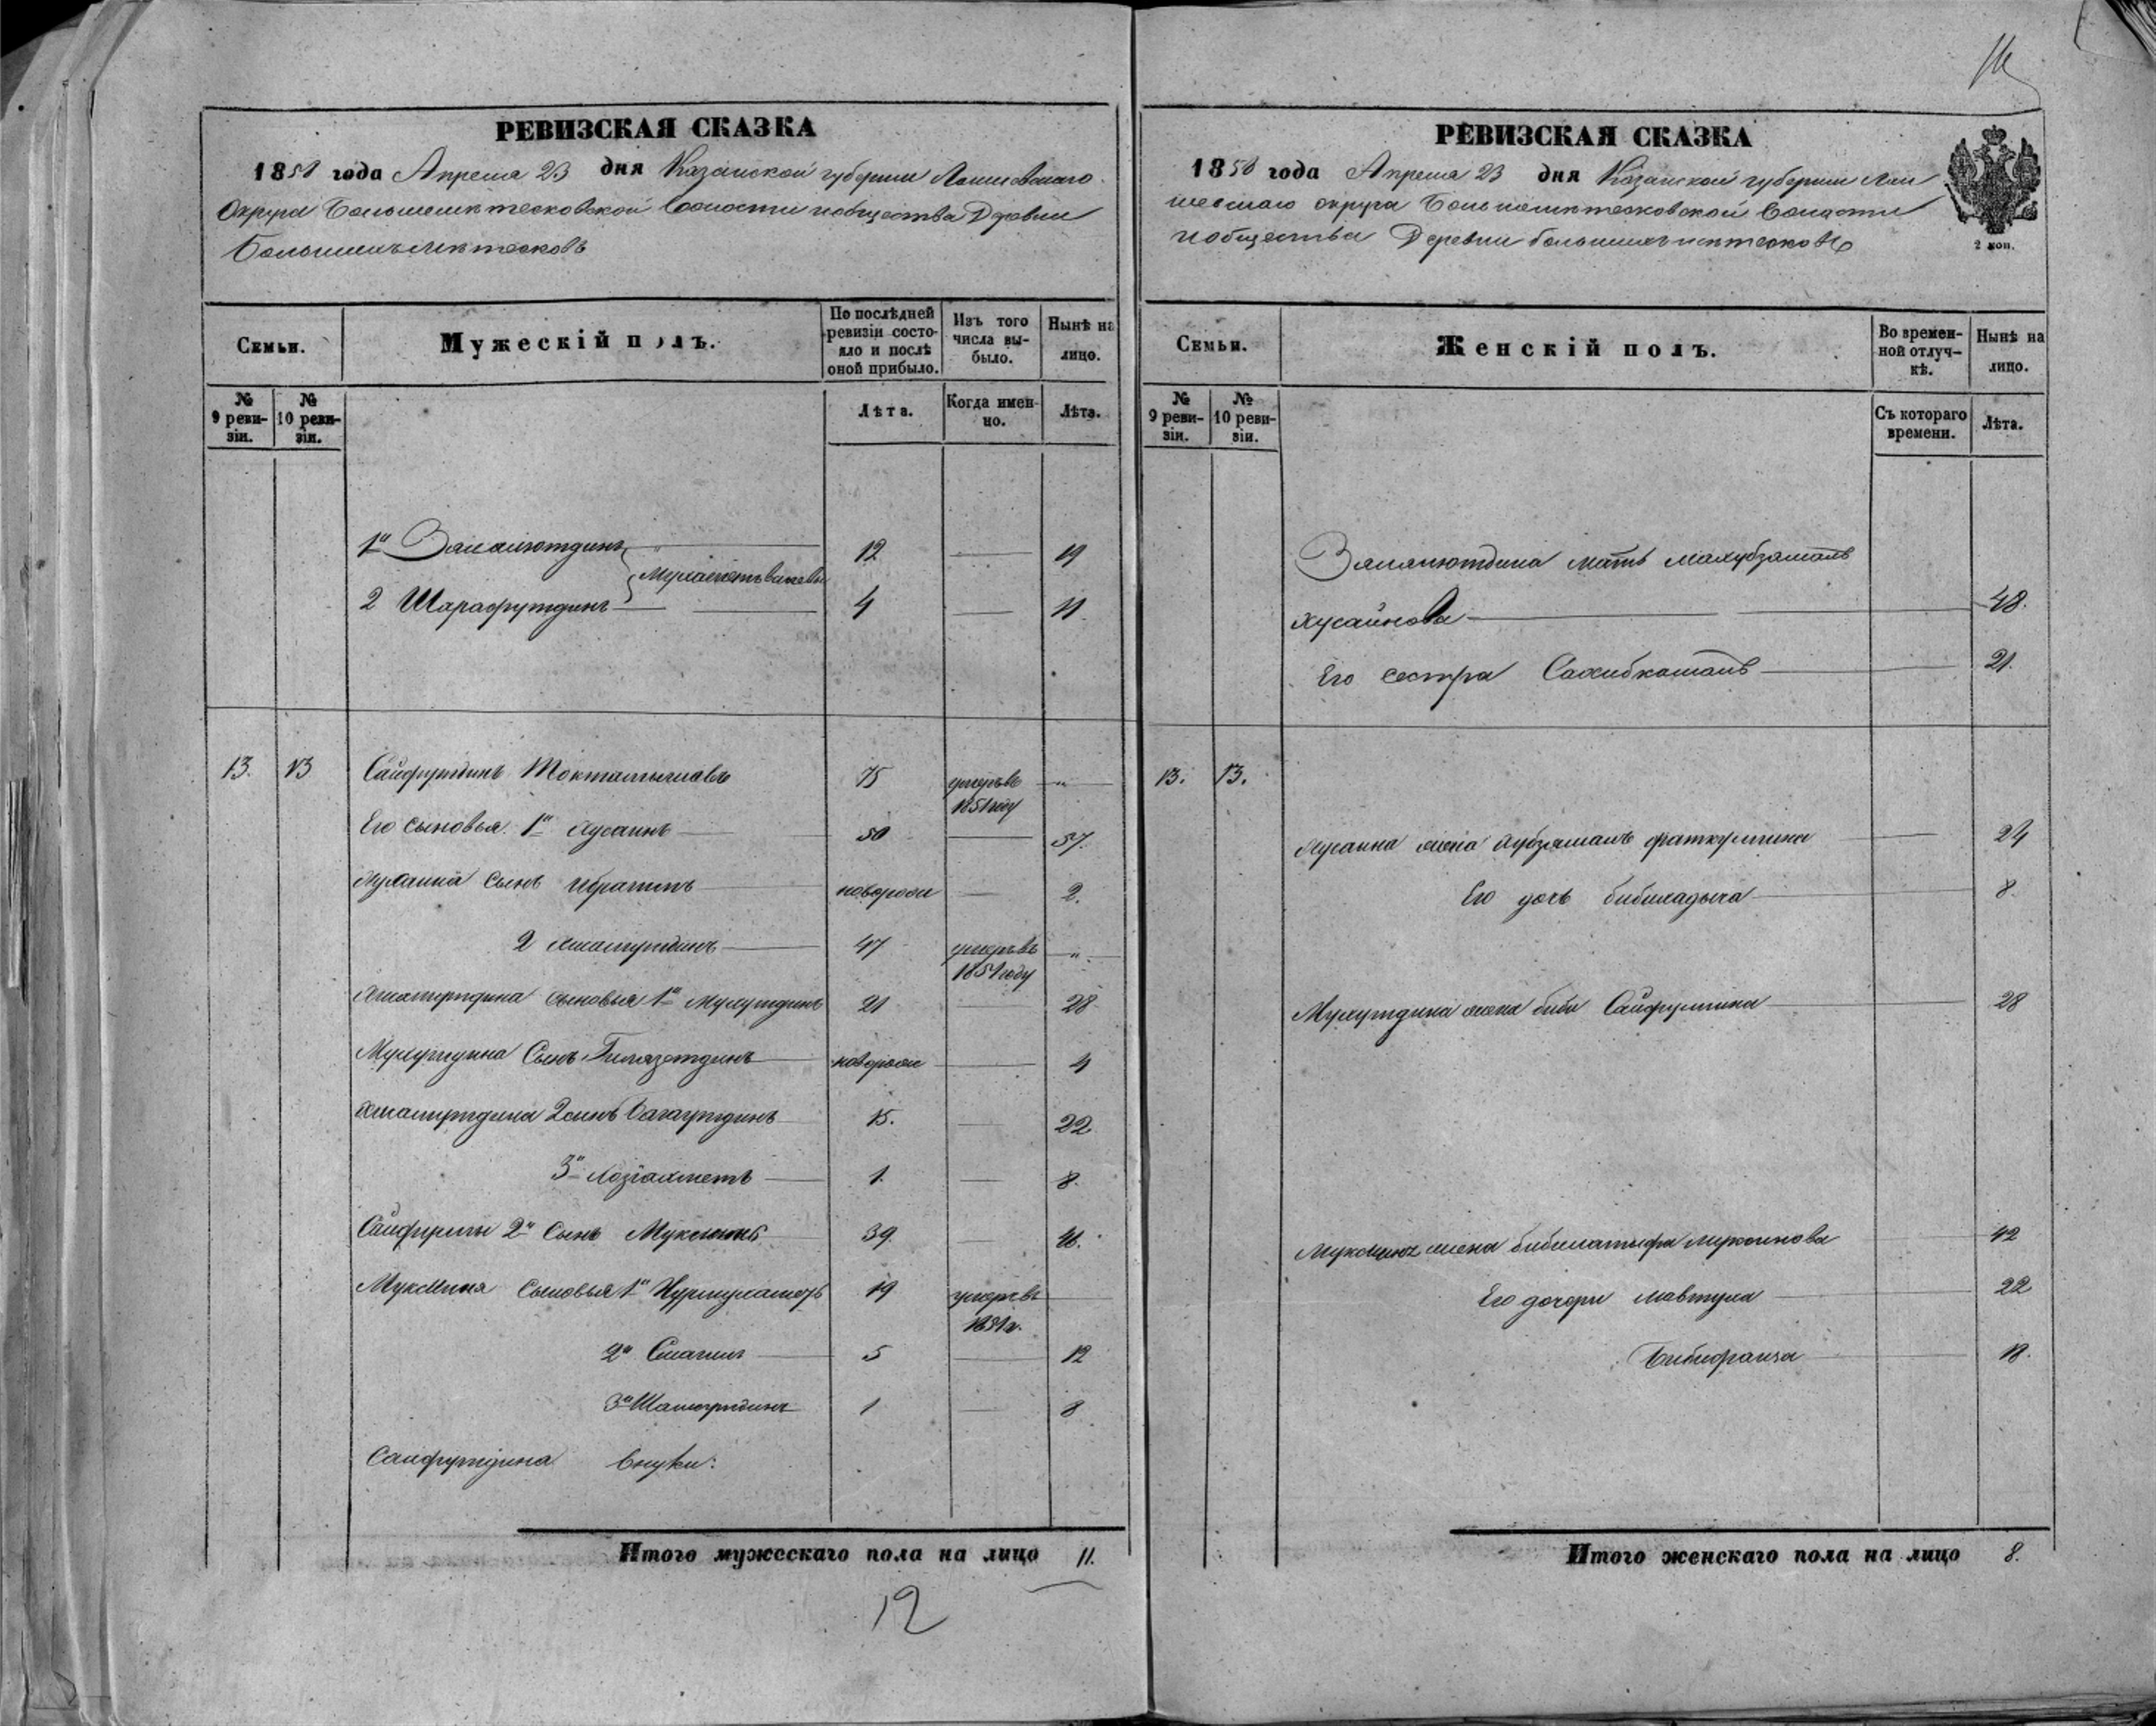 РЕВИЗСКАЯ СКАЗКА
1858 года Апреля 23 дня Казанской губернии Лаишевскаго
Округа Большеметесковской Волости и общества Деревни
Большихъ Метесковъ
Семьи.
Мужескій полъ.
По послѣдней ревизіи состояло и послѣ оной прибыло.
Изъ того числа выбыло.
Нынѣ на лицо.
№ 9 ревизіи.
№ 10 ревизіи.
Лѣта.
Когда именно.
Лѣта.
1й Замалютдинъ 12 — 19
2 Шарафутдинъ 4 — 11
13. 13 Сайфутдинъ Токтамышавъ 75 умеръ въ 1851 году "
Его сыновья 1й Хусаинъ 50 — 57.
Хусаина сынъ Ибрагимъ новорож — 2.
2 Ахматутдинъ 47 умеръ въ 1851 году "
сыновья 1й Мухутдинъ 21 — 28
Мухутдина Сынъ Гилязетдинъ новорож — 4
2 сынъ Багаутдинъ 15. — 22
3й 1. — 8.
2й Сынъ Муксинъ 39 — 46.
Муксина Сыновья 1й Нурмухаметъ 19 умеръ въ 1851 г.
2й Смагилъ 5 — 12
3й 1 — 8
Сайфутдина внуки:
Итого мужескаго пола на лицо 11.
12
РЕВИЗСКАЯ СКАЗКА
1858 года Апреля 23 дня Казанской губерніи Лаи
шевскаго округа Большеметесковской Волости
и общества Деревни большихъ метесковъ
2 коп.
Семьи.
Женскій полъ.
Во временной отлучкѣ.
Нынѣ на лицо.
№ 9 ревизіи.
№ 10 ревизіи.
Съ котораго времени.
Лѣта.
Замалютдина мать Махубзямаль
Хусаинова 48.
Его сестра Сахибкамаль 21.
13. 13.
Хусаина жена Хубзямаль фаткуллина 24
Его дочь бибихадыча 8.
Мухутдина жена биби Сайфуллина 28
Муксина жена бибилатыфа 42
Его дочери мавтуха 22
Бибифаиза 18.
Итого женскаго пола на лицо 8.